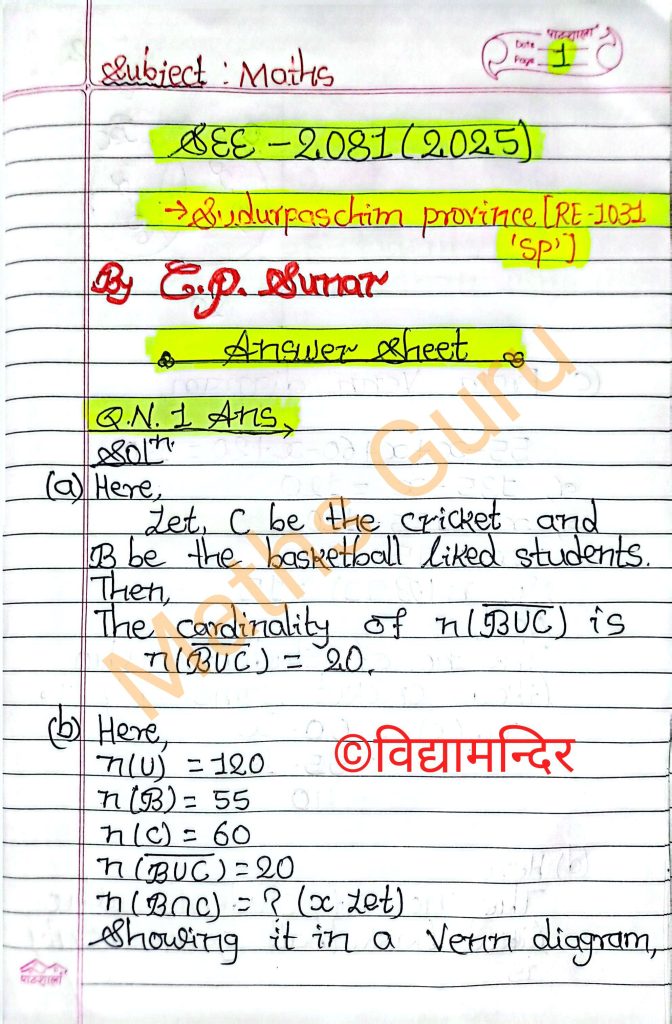 पाठशाला
Date
Page 1
Subject : Maths
SEE - 2081 (2025)
→ Sudurpaschim province [RE-1031
'SP']
By C.P. Sunar
Answer Sheet
Q.N. 1 Ans
Solⁿ
(a) Here,
Let, C be the cricket and
B be the basketball liked students.
Then,
The cardinality of n(B̅U̅C̅) is
n(B̅U̅C̅) = 20.
(b) Here,
n(U) = 120
n(B) = 55
n(C) = 60
n(B̅U̅C̅) = 20
n(B∩C) = ? (x Let)
Showing it in a Venn diagram,
Meths Guru
©विद्यामन्दिर
पाठशाला